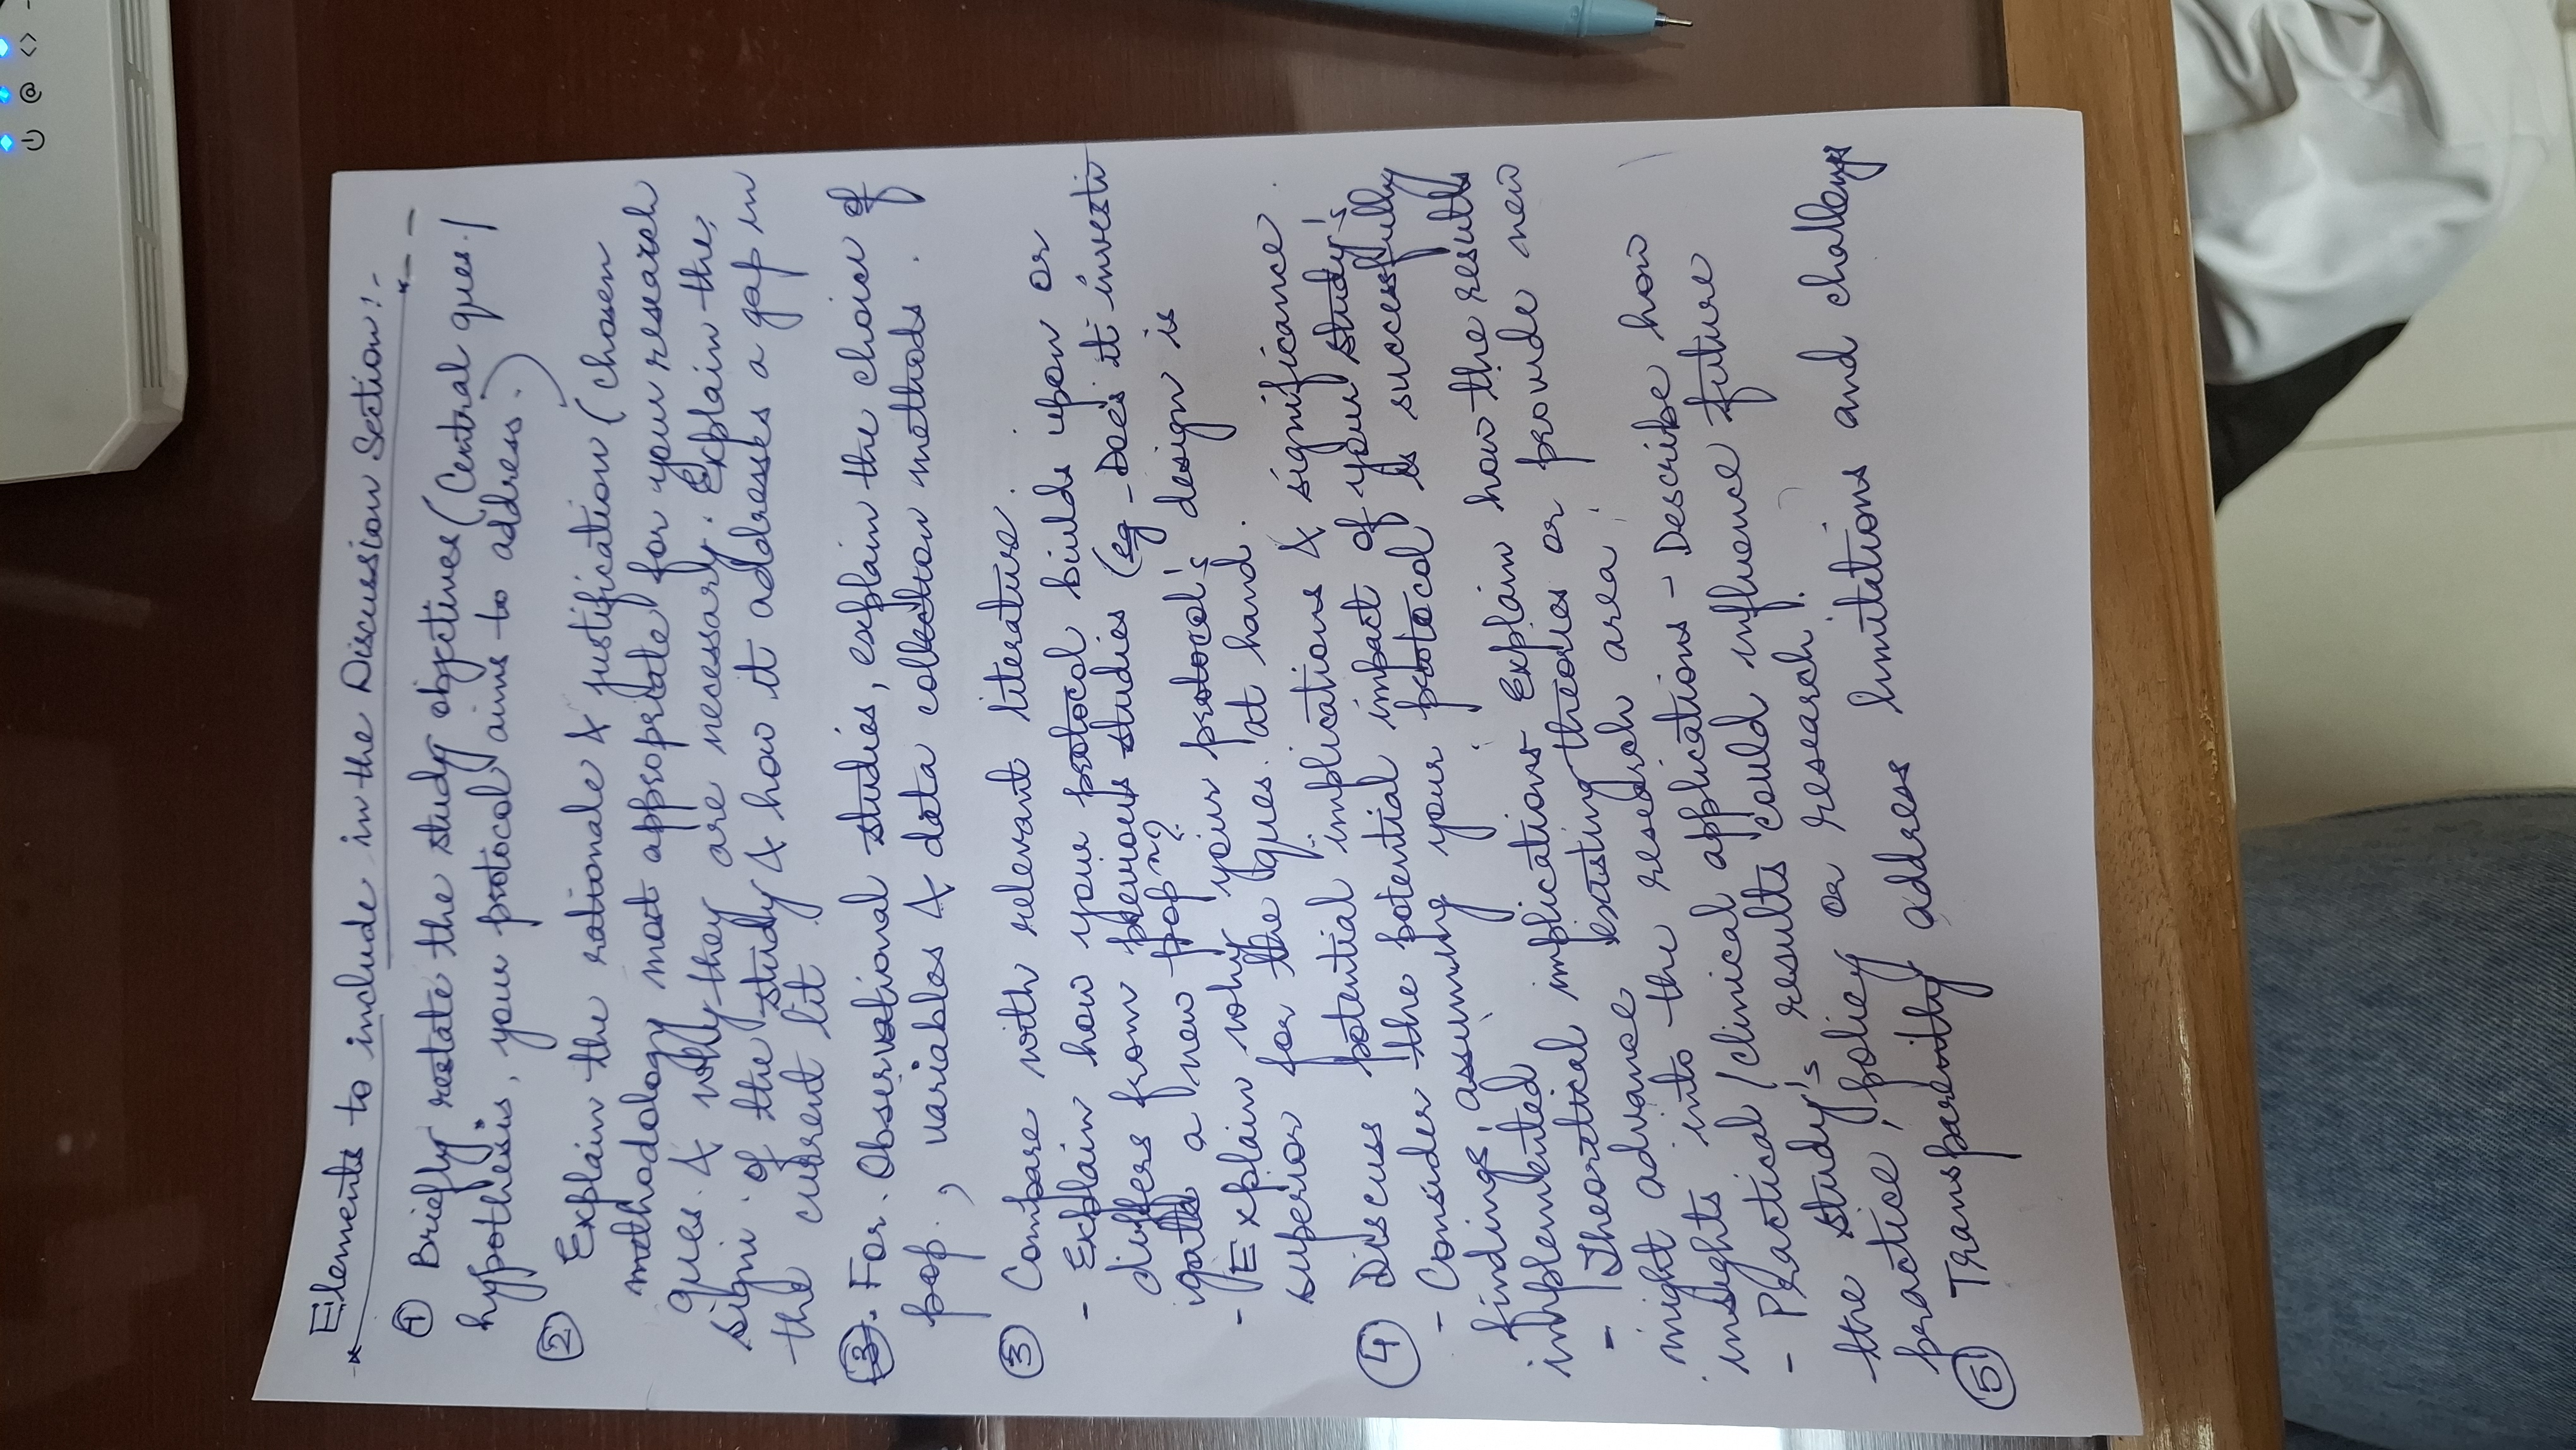 * Elements to include in the Discussion Section:-
① Briefly restate the study objectives (Central ques./
hypothesis, your protocol aims to address.)
② Explain the rationale & justification (chosen
methodology most appropriate for your research
ques. & why they are necessary. Explain the
signi. of the study & how it addresses a gap in
the current lit.
③. For Observational studies, explain the choice of
pop., variables & data collection methods.
③ Compare with relevant literature.
- Explain how your protocol builds upon or
differs from previous studies (eg - Does it investi
gate a new popn?
- Explain why your protocol's design is
superior for the ques. at hand.
④ Discuss potential implications & significance.
- Consider the potential impact of your study's
findings, assuming your protocol is successfully
implemented.
- Theoretical implications - Explain how the results
might advance existing theories or provide new
insights into the research area.
- Practical/clinical applications - Describe how
the study's results could influence future
practice, policy or research.
⑤ Transparently address limitations and challenges